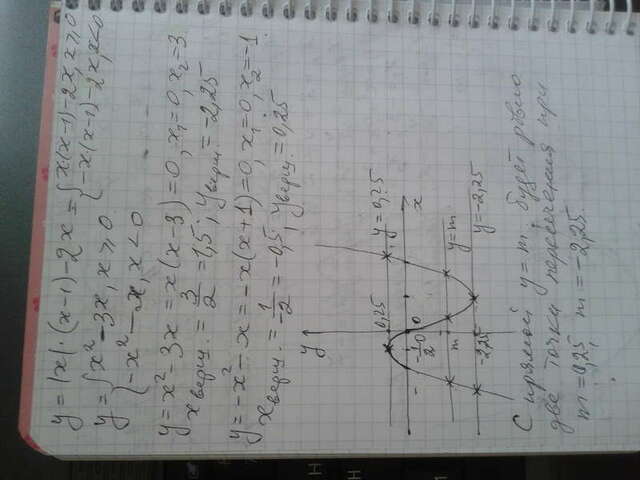 y = |x|·(x-1)-2x = { x(x-1)-2x, x ≥ 0
{ -x(x-1)-2x, x < 0
y = { x² - 3x, x ≥ 0
{ -x² - x, x < 0
y = x² - 3x = x(x-3) = 0, x₁ = 0, x₂ = 3
x верш. = 3/2 = 1,5; y верш. = -2,25
y = -x² - x = -x(x+1) = 0, x₁ = 0, x₂ = -1
x верш. = -1/2 = -0,5; y верш. = 0,25
y
0,25 y = 0,25
-1 -1/2 0 x
m y = m
-2,25 y = -2,25
С прямой y = m будет ровно
две точки пересечения при
m = 0,25, m = -2,25.